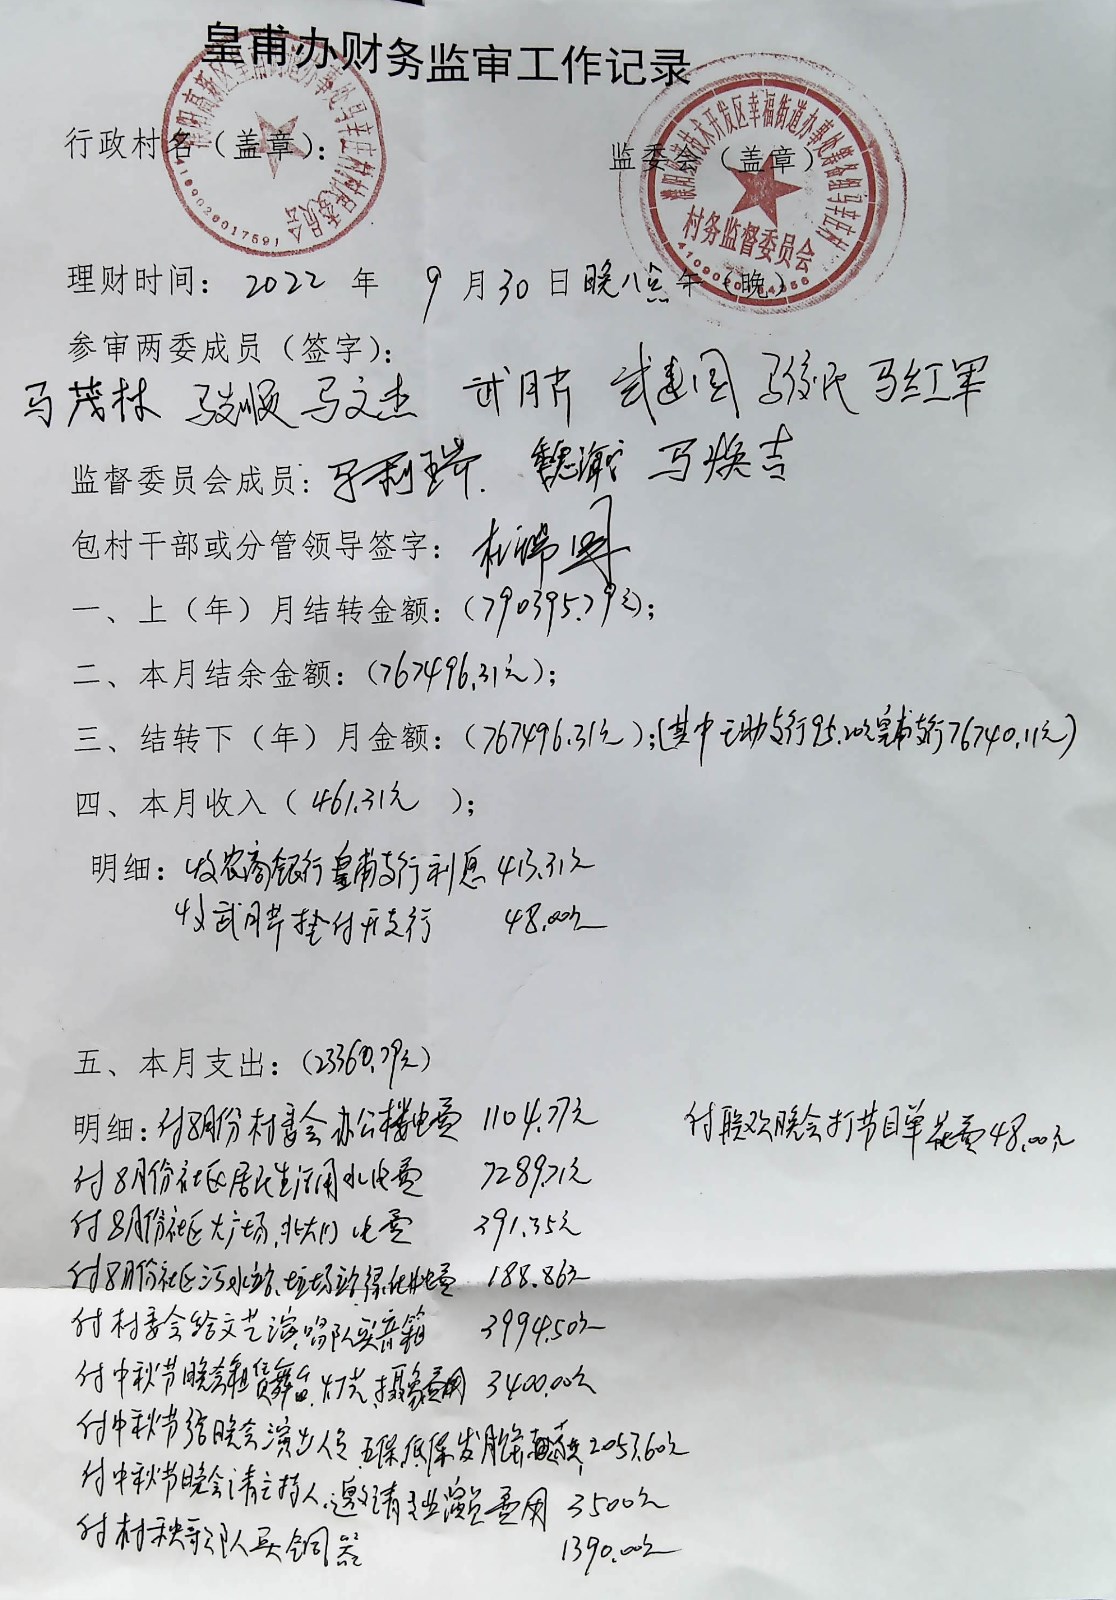 皇甫办财务监审工作记录
行政村名（盖章）：
监委会（盖章）
村务监督委员会
理财时间：2022 年 9 月 30 日晚八点午（晚）
参审两委成员（签字）：
马茂林 马文杰 武月芹 武建国 马俊民 马红军
监督委员会成员：马利瑞 马焕吉
包村干部或分管领导签字：杜瑞
一、上（年）月结转金额：（790395.79元）；
二、本月结余金额：（767496.31元）；
三、结转下（年）月金额：（767496.31元）；（其中 支行95.20元皇甫支行76740.11元）
四、本月收入（461.31元 ）；
明细：收农商银行皇甫支行利息 413.31元
收武月芹垫付开支行 48.00元
五、本月支出：（23360.79元）
明细：付8月份村委会办公楼电费 1104.77元
付联欢晚会打节目单花费48.00元
付8月份社区居民生活用水电费 7289.71元
付8月份社区大广场、北大门电费 391.35元
付8月份社区污水站、垃圾站、绿化电费 188.86元
付村委会给文艺演唱队买音箱 3994.50元
付中秋节晚会租赁舞台、灯光、摄象费用 3400.00元
付中秋节给晚会演出人员、五保低保发月饼 2053.60元
付中秋节晚会请主持人、邀请专业演员费用 3500元
付村秧歌队买铜器 1390.00元